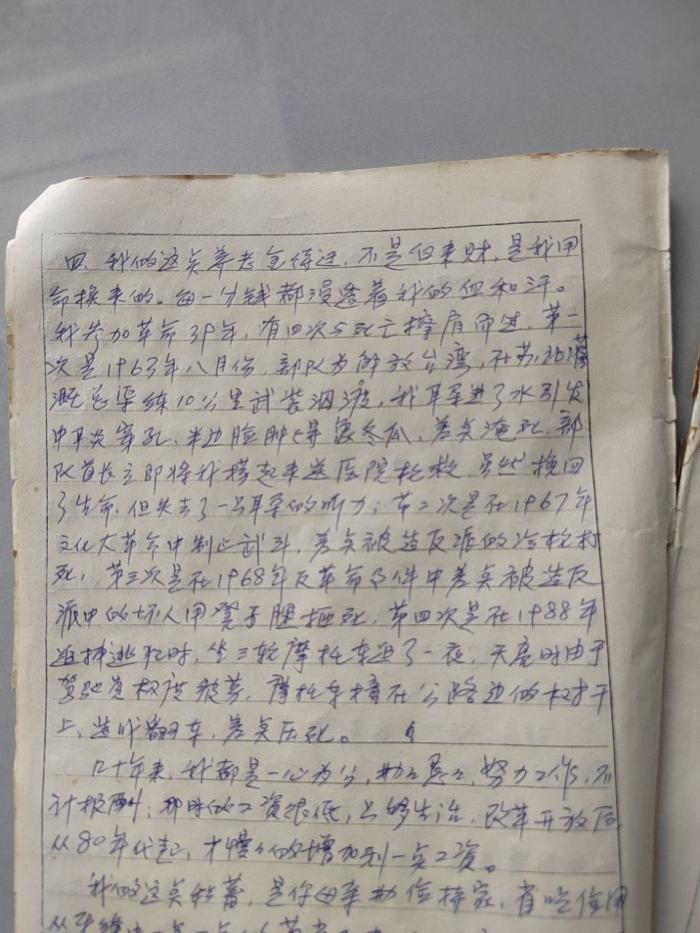 四、我的这点养老金待遇，不是白来财，是我用
命换来的。每一分钱都浸透着我的血和汗。
我参加革命39年，有四次与死亡擦肩而过，第一
次是1963年八月份，部队为解放台湾，在苏北灌
溉总渠练10公里武装泅渡，我耳朵进了水引发
中耳炎穿孔，半边脸肿得像冬瓜，差点淹死，部
队首长立即将我捞起来送医院抢救，虽然换回
了生命，但失去了一只耳朵的听力；第二次是在1967年
文化大革命中制止武斗，差点被造反派的冷枪打
死，第三次是在1968年反革命事件中差点被造反
派中的坏人用凳子腿砸死，第四次是在1988年
追捕逃犯时，坐三轮摩托车追了一夜，天亮时由于
驾驶员极度疲劳，摩托车撞在公路边的树干
上，造成翻车，差点压死。
几十年来，我都是一心为公，勤勤恳恳，努力工作，不
计报酬；那时的工资很低，只够生活，改革开放后，
从80年代起，才慢慢的增加到一点工资。
我的这点积蓄，是你母亲勤俭持家，省吃俭用
从牙缝中一点一点的